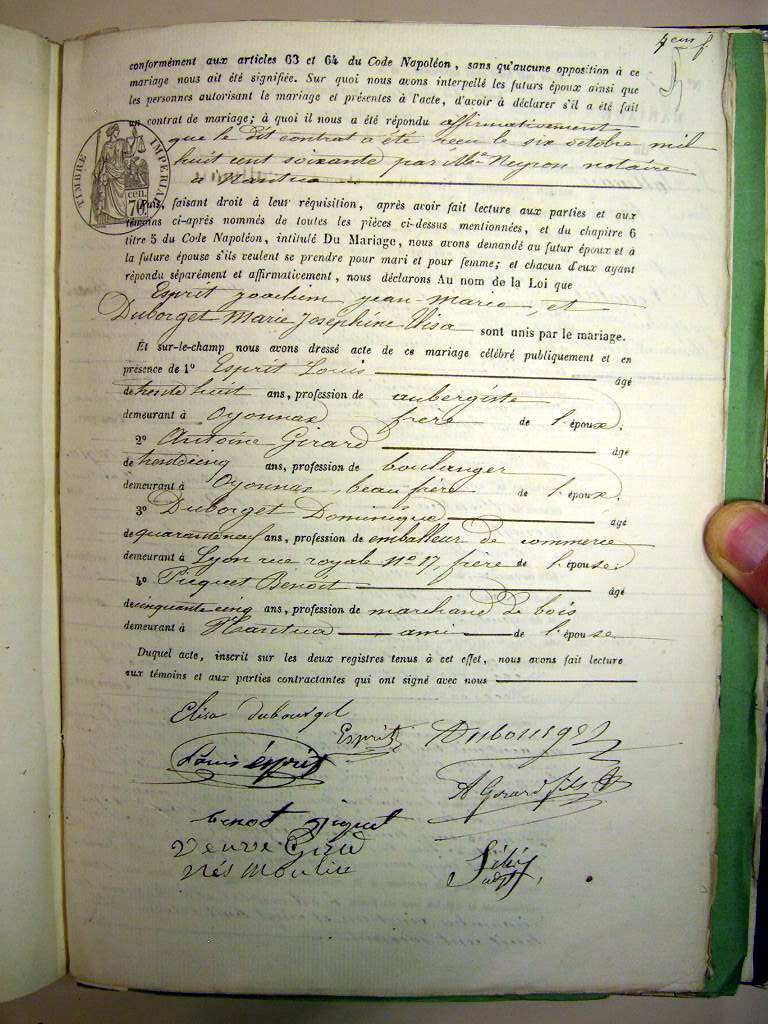 4eme f
conformément aux articles 63 et 64 du Code Napoléon, sans qu'aucune opposition à ce
mariage nous ait été signifiée. Sur quoi nous avons interpellé les futurs époux ainsi que
les personnes autorisant le mariage et présentes à l'acte, d'avoir à déclarer s'il a été fait
un contrat de mariage; à quoi il nous a été répondu affirmativement
que le dit contrat a été reçu le six octobre mil
huit cent soixante par Me Neyron notaire
à Nantua
TIMBRE IMPÉRIAL
70 cen.
Puis, faisant droit à leur réquisition, après avoir fait lecture aux parties et aux
témoins ci-après nommés de toutes les pièces ci-dessus mentionnées, et du chapitre 6
titre 5 du Code Napoléon, intitulé Du Mariage, nous avons demandé au futur époux et à
la future épouse s'ils veulent se prendre pour mari et pour femme; et chacun d'eux ayant
répondu séparément et affirmativement, nous déclarons Au nom de la Loi que
Esprit Joachim Jean Marie, et
Duborget Marie Joséphine Elisa sont unis par le mariage.
Et sur-le-champ nous avons dressé acte de ce mariage célébré publiquement et en
présence de 1° Esprit Louis âgé
de trente huit ans, profession de aubergiste
demeurant à Oyonnax frère de l'époux.
2° Antoine Girard âgé
de trente cinq ans, profession de boulanger
demeurant à Oyonnax, beau frère de l'époux.
3° Duborget Dominique âgé
de quarante neuf ans, profession de emballeur de commerce
demeurant à Lyon rue royale No 17, frère de l'épouse.
4° Picquet Benoît âgé
de cinquante cinq ans, profession de marchand de bois
demeurant à Nantua ami de l'épouse
Duquel acte, inscrit sur les deux registres tenus à cet effet, nous avons fait lecture
aux témoins et aux parties contractantes qui ont signé avec nous
Elisa dubourgel
Esprit Dubourget
Louis ésprit
A Girard fils
benoit piquet
veuve Girod
nés Moulin